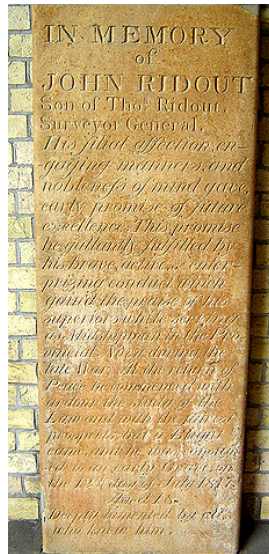 IN MEMORY
of
JOHN RIDOUT
Son of Thos. Ridout,
Surveyor General,
His filial affection, en-
gaging manners, and
nobleness of mind gave,
early promise of future
excellence. This promise
he gallantly fulfilled by
his brave, active, & enter-
prizing conduct which
gain'd the praise of his
superiors while serving
as Midshipman in the Pro-
vincial Navy during the
late War. At the return of
Peace he commenced with
ardour the study of the
Law and with the fairest
prospects, but a Blight
came, and he was consign-
ed to an early Grave on
the 12th day of July 1817.
Aged 18.
Deeply lamented by all
who knew him.